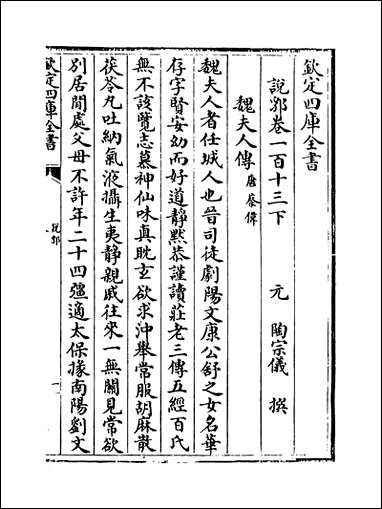 欽定四庫全書
說郛卷一百十三下
元 陶宗儀 撰
魏夫人傳 唐 蔡偉
魏夫人者任城人也晉司徒劇陽文康公舒之女名華
存字賢安幼而好道靜黙恭謹讀莊老三傳五經百氏
無不該覽志慕神仙味真耽玄欲求沖舉常服胡麻散
茯苓丸吐納氣液攝生夷靜親戚往來一無關見常欲
別居閒處父母不許年二十四彊適太保掾南陽劉文
欽定四庫全書
說郛
一